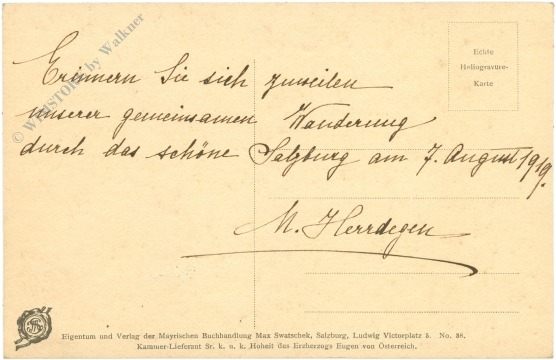 Echte
Heliogravure-
Karte
Erinnern Sie sich zuweilen
unserer gemeinsamen Wanderung
durch das schöne Salzburg am 7. August 1919.
M. Herrdegen
© W-HISTORY by Walkner
Eigentum und Verlag der Mayrischen Buchhandlung Max Swatschek, Salzburg, Ludwig Victorplatz 5. No. 38.
Kammer-Lieferant Sr. k. u. k. Hoheit des Erzherzogs Eugen von Österreich.